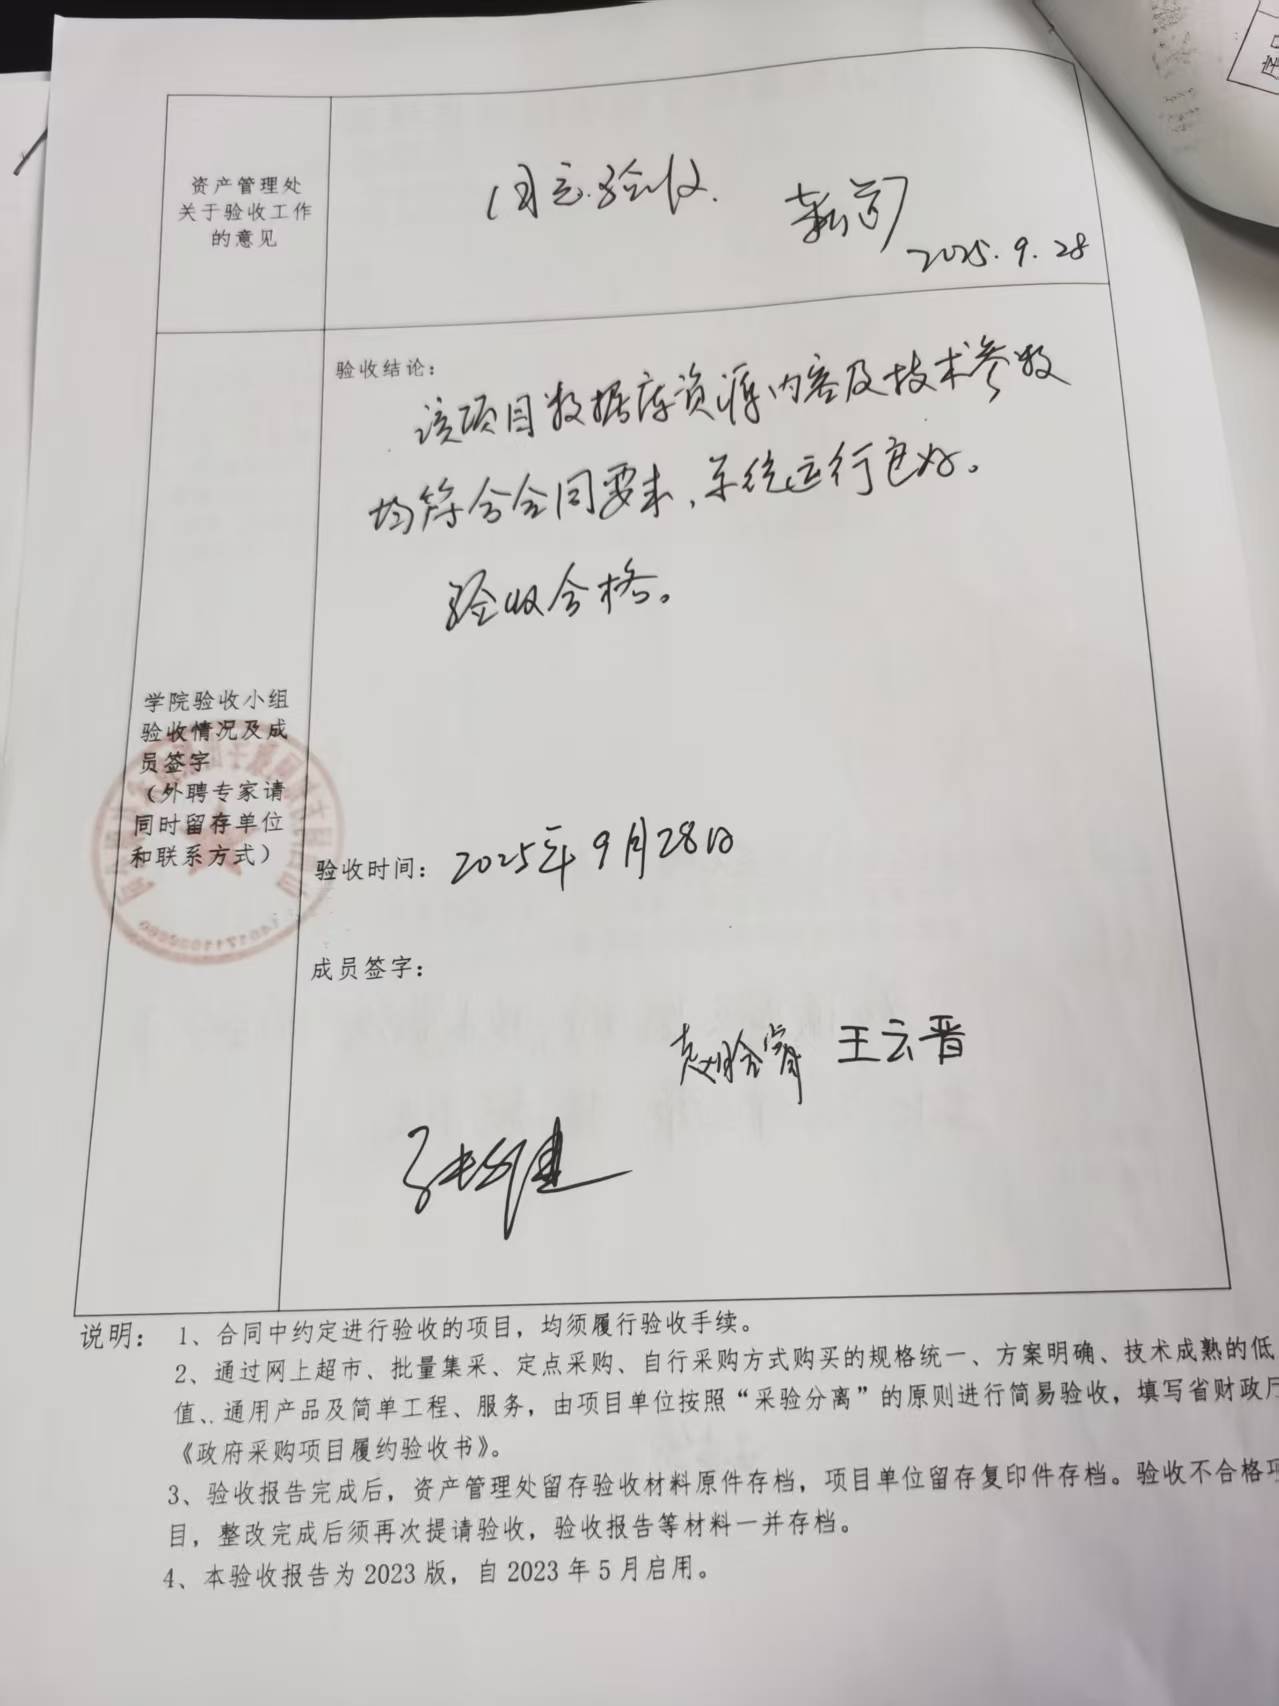 资产管理处
关于验收工作
的意见
同意验收.
2025.9.28
验收结论：
该项目数据库资源内容及技术参数
均符合合同要求，系统运行良好。
验收合格。
学院验收小组
验收情况及成
员签字
（外聘专家请
同时留存单位
和联系方式）
验收时间：2025年9月28日
成员签字：
王云晋
说明：1、合同中约定进行验收的项目，均须履行验收手续。
2、通过网上超市、批量集采、定点采购、自行采购方式购买的规格统一、方案明确、技术成熟的低
值、通用产品及简单工程、服务，由项目单位按照“采验分离”的原则进行简易验收，填写省财政厅
《政府采购项目履约验收书》。
3、验收报告完成后，资产管理处留存验收材料原件存档，项目单位留存复印件存档。验收不合格项
目，整改完成后须再次提请验收，验收报告等材料一并存档。
4、本验收报告为2023版，自2023年5月启用。